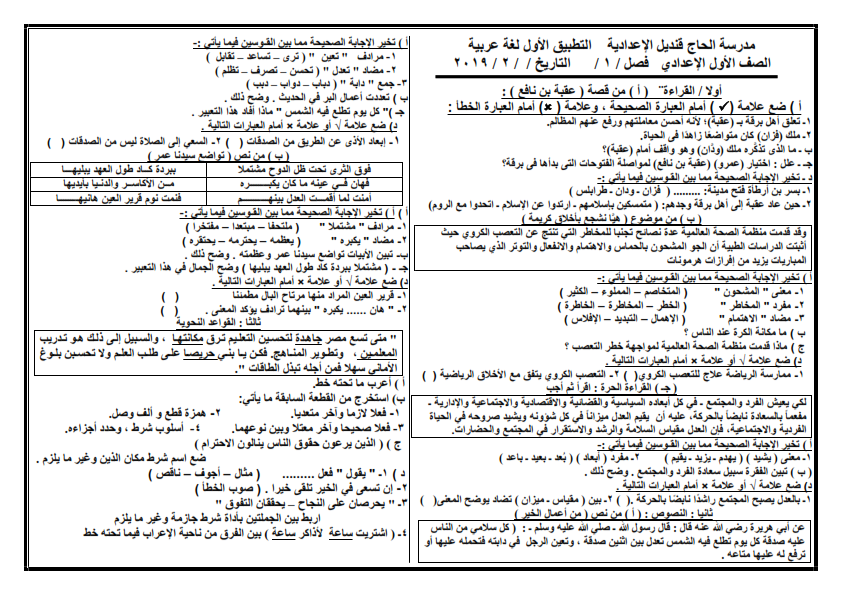 مدرسة الحاج قنديل الإعدادية التطبيق الأول لغة عربية
الصف الأول الإعدادي فصل / ١ / التاريخ / / ٢ / ٢٠١٩
أولا / القراءة" ( أ ) من قصة ( عقبة بن نافع ) :
أ ) ضع علامة ( ✓ ) أمام العبارة الصحيحة ، وعلامة ( × ) أمام العبارة الخطأ :
١- تعلق أهل برقة بـ (عقبة)؛ لأنه أحسن معاملتهم ورفع عنهم المظالم.
٢- ملك (فزان) كان متواضعًا زاهدًا في الحياة.
ب- ما الذى تذكَّره ملك (وَدَّان) وهو واقف أمام (عقبة)؟
جـ- علل : اختيار (عمرو) (عقبة بن نافع) لمواصلة الفتوحات التى بدأها فى برقة؟
د - تخير الإجابة الصحيحة مما بين القوسين فيما يأتي :-
١- يسر بن أرطاة فتح مدينة: ......... ( فزان - ودان - طرابلس )
٢- حين عاد عقبة إلى أهل برقة وجدهم: ( متمسكين بإسلامهم - ارتدوا عن الإسلام - اتحدوا مع الروم)
( ب ) من موضوع ( هيَّا نشجع بأخلاق كريمة )
وقد قدمت منظمة الصحة العالمية عدة نصائح تجنبا للمخاطر التي تنتج عن التعصب الكروي حيث
أثبتت الدراسات الطبية أن الجو المشحون بالحماس والاهتمام والانفعال والتوتر الذي يصاحب
المباريات يزيد من إفرازات هرمونات
أ ) تخير الإجابة الصحيحة مما بين القوسين فيما يأتي :-
١- معنى " المشحون " ( المتخاصم – المملوء – الكثير )
٢- مفرد " المخاطر " ( الخطر – المخاطرة – الخاطرة )
٣- مضاد " الاهتمام " ( الإهمال – التبديد – الإفلاس )
ب ) ما مكانة الكرة عند الناس ؟
ج ) ماذا قدمت منظمة الصحة العالمية لمواجهة خطر التعصب ؟
د) ضع علامة √ أو علامة × أمام العبارات التالية .
١- ممارسة الرياضة علاج للتعصب الكروي( ) ٢- التعصب الكروي يتفق مع الأخلاق الرياضية ( )
( جـ ) القراءة الحرة : اقرأ ثم أجب
لكي يعيش الفرد والمجتمع – في كل أبعاده السياسية والقضائية والاقتصادية والاجتماعية والإدارية –
مفعماً بالسعادة نابضاً بالحركة، عليه أن يقيم العدل ميزاناً في كل شؤونه ويشيد صروحه في الحياة
الفردية والاجتماعية، فإن العدل مقياس السلامة والرشد والاستقرار في المجتمع والحضارات.
أ ) تخير الإجابة الصحيحة مما بين القوسين فيما يأتي :-
١- معنى ( يشيد ) ( يهدم – يزيد – يقيم ) ٢- مفرد ( أبعاد ) ( بُعد – بعيد – باعد )
( ب ) تبين الفقرة سبيل سعادة الفرد والمجتمع . وضح ذلك .
د) ضع علامة √ أو علامة × أمام العبارات التالية .
١- بالعدل يصبح المجتمع راشدًا نابضا بالحركة . ( ) ٢- بين ( مقياس - ميزان ) تضاد يوضح المعنى( )
ثانيا : النصوص : ( أ ) من نص ( من أعمال الخير )
عن أبي هريرة رضي الله عنه قال : قال رسول الله - صلى الله عليه وسلم - : ( كل سلامي من الناس
عليه صدقة كل يوم تطلع فيه الشمس تعدل بين اثنين صدقة ، وتعين الرجل في دابته فتحمله عليها أو
ترفع له عليها متاعه .
أ ) تخير الإجابة الصحيحة مما بين القوسين فيما يأتي :-
١- مرادف " تعين " ( ترى – تساعد – تقابل )
٢- مضاد " تعدل " ( تحسن – تصرف – تظلم )
٣- جمع " دابة " ( دباب – دواب – دبب )
ب ) تعددت أعمال البر في الحديث . وضح ذلك .
جـ )" كل يوم تطلع فيه الشمس " ماذا أفاد هذا التعبير .
د) ضع علامة √ أو علامة × أمام العبارات التالية .
١- إبعاد الأذى عن الطريق من الصدقات ( ) ٢- السعي إلى الصلاة ليس من الصدقات ( )
( ب ) من نص ( تواضع سيدنا عمر )
فوق الثرى تحت ظل الدوح مشتملا ببردة كاد طول العهد يبليهـــا
فهان في عينه ما كان يكبـــــره مـن الأكاسـر والدنـيا بأيديها
أمنت لما أقمست العدل بينهـــم فنمت نوم قرير العين هانيهـــا
أ ) تخير الإجابة الصحيحة مما بين القوسين فيما يأتي :-
١- مرادف " مشتملا " ( ملتحفا – مبتعدا – مفتخرا )
٢- مضاد " يكبره " ( يعظمه – يحترمه – يحتقره )
ب- تبين الأبيات تواضع سيدنا عمر وعظمته . وضح ذلك .
جـ - ( مشتملا ببردة كاد طول العهد يبليها ) وضح الجمال في هذا التعبير .
د) ضع علامة √ أو علامة × أمام العبارات التالية .
١- قرير العين المراد منها مرتاح البال مطمئنا ( )
٢- " هان ...... يكبره " بينهما ترادف يؤكد المعنى . ( )
ثالثا : القواعد النحوية
" متى تسع مصر جاهدة لتحسين التعليم ترق مكانتها ، والسبيل إلى ذلك هو تدريب
المعلمين ، وتطوير المناهج. فكن يا بني حريصا على طلب العلم ولا تحسبن بلوغ
الأماني سهلا فمن أجله تبذل الطاقات ".
أ ) أعرب ما تحته خط.
ب) استخرج من القطعة السابقة ما يأتي:
١- فعلا لازما وآخر متعديا. ٢- همزة قطع و ألف وصل.
٣- فعلا صحيحا وآخر معتلا وبين نوعهما. ٤- أسلوب شرط ، وحدد أجزاءه.
ج ) ( الذين يرعون حقوق الناس ينالون الاحترام )
ضع اسم شرط مكان الذين وغير ما يلزم .
د ) ١- "يقول " فعل ......... ( مثال – أجوف – ناقص )
٢- إن تسعى في الخير تلقى خيرا . ( صوب الخطأ )
٣- " يحرصان على النجاح – يحققان التفوق "
اربط بين الجملتين بأداة شرط جازمة وغير ما يلزم
٤- ( اشتريت ساعة لأذاكر ساعة ) بين الفرق من ناحية الإعراب فيما تحته خط